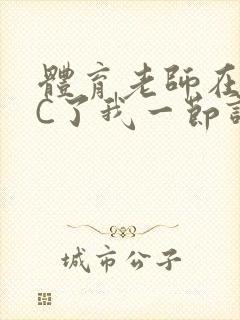 體育老師在
C了我一節
城市公子